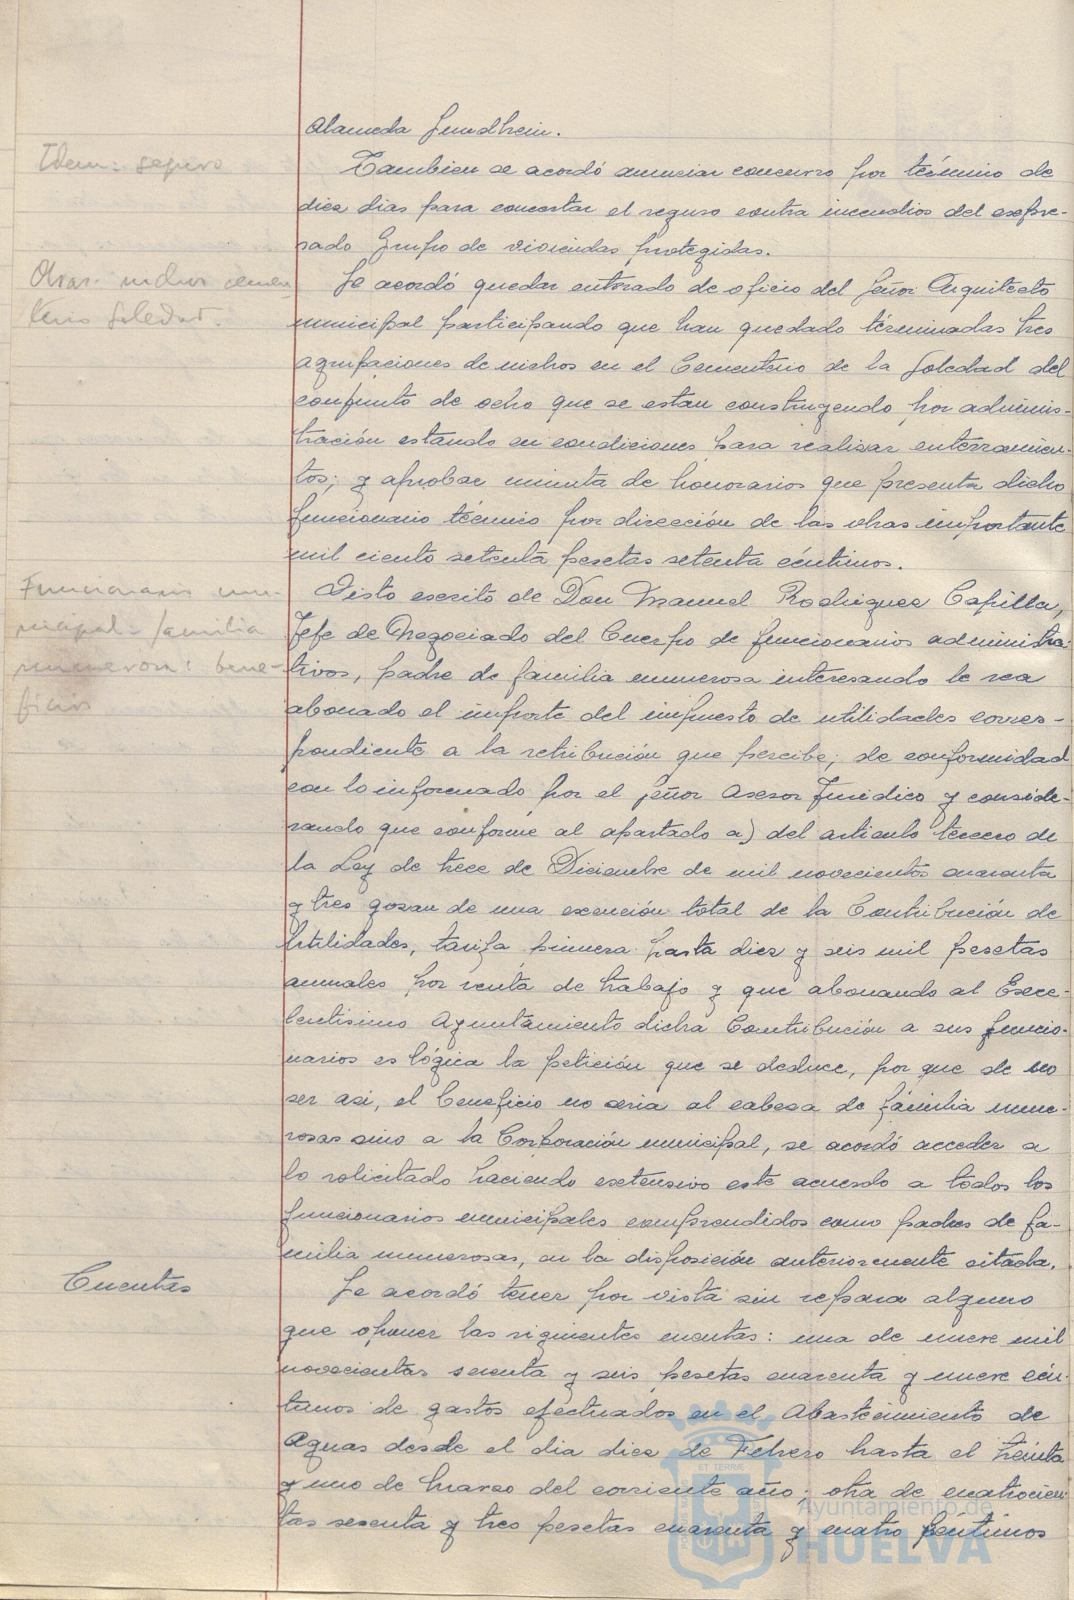 Alameda Sundhein.
Idem: seguro
Tambien se acordó anunciar concurso por término de
diez dias para concertar el seguro contra incendios del expre-
sado Grupo de viviendas protegidas.
Obras: nichos cemen-
terio Soledad.
Se acordó quedar enterado de oficio del Señor Arquitecto
municipal participando que han quedado términadas tres
agrupaciones de nichos en el Cementerio de la Soledad del
conjunto de ocho que se estan construyendo por adminis-
tración estando en condiciones para realizar enterramien-
tos; y aprobar minuta de honorarios que presenta dicho
funcionario técnico por dirección de las obras importante
mil ciento setenta pesetas setenta céntimos.
Funcionario mu-
nicipal: familia
numerosa: bene-
ficios
Visto escrito de Don Manuel Rodriguez Capilla,
Jefe de Negociado del Cuerpo de funcionarios administra-
tivos, padre de familia numerosa interesando le sea
abonado el importe del impuesto de utilidades corres-
pondiente a la retribución que percibe; de conformidad
con lo informado por el señor Asesor Juridico y conside-
rando que conforme al apartado a) del articulo tercero de
la Ley de trece de Diciembre de mil novecientos cuarenta
y tres gozan de una exención total de la Contribución de
Utilidades, tarifa primera hasta diez y seis mil pesetas
anuales por renta de trabajo y que abonando al Exce-
lentisimo Ayuntamiento dicha Contribución a sus funcio-
narios es lógica la petición que se deduce, por que de no
ser asi, el beneficio no seria al cabeza de familia nume-
rosas sino a la Corporación municipal, se acordó acceder a
lo solicitado haciendo extensivo este acuerdo a todos los
funcionarios municipales comprendidos como padres de fa-
milia numerosas, en la disposición anteriormente citada.
Cuentas
Se acordó tener por vista sin reparo alguno
que oponer las siguientes cuentas: una de nueve mil
novecientas setenta y seis pesetas cuarenta y nueve cén-
timos de gastos efectuados en el Abastecimiento de
Aguas desde el dia diez de Febrero hasta el treinta
y uno de Marzo del corriente año; otra de cuatrocien-
tas sesenta y tres pesetas cuarenta y cuatro céntimos
ET TERRÆ
Ayuntamiento de
HUELVA